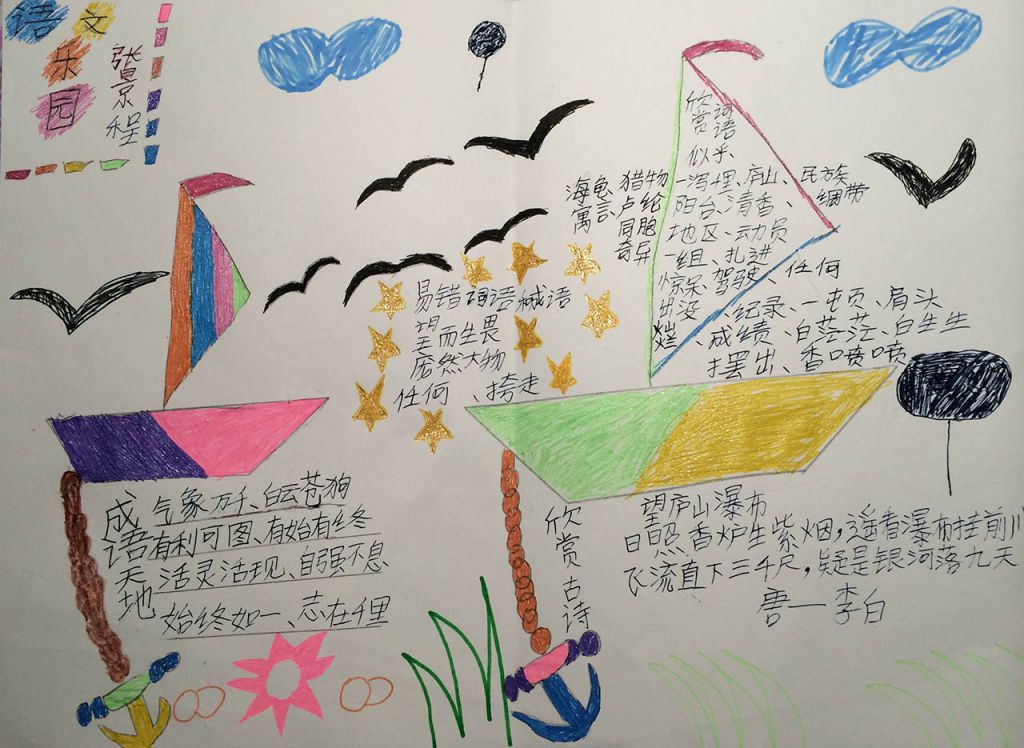 语文
乐园
张景程
欣赏词语
似乎、
海龟 猎物 一泻 埋、庐山、民族
寓言、卢纶 阳台、清香、绸带
同胞 地区、动员
奇异 一组、扎进
惊呆、驾驶、任何
出没 、纪录、一顿、肩头
成绩、白茫茫、白生生
摆出、香喷喷
易错词语 成语
望而生畏
庞然大物
任何 、挎走
成语天地
气象万千、白云苍狗
有利可图、有始有终
活灵活现、自强不息
始终如一、志在千里
欣赏古诗
望庐山瀑布
日照香炉生紫烟，遥看瀑布挂前川
飞流直下三千尺，疑是银河落九天
唐一李白